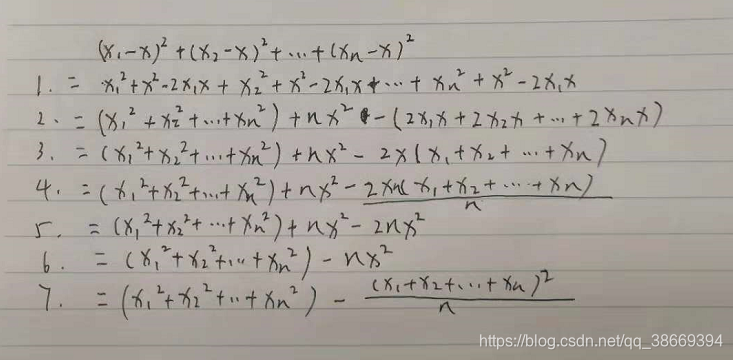 (x₁-x)² + (x₂-x)² + ... + (xn-x)²
1. = x₁² + x² - 2x₁x + x₂² + x² - 2x₁x + ... + xn² + x² - 2x₁x
2. = (x₁² + x₂² + ... + xn²) + nx² - (2x₁x + 2x₂x + ... + 2xnx)
3. = (x₁² + x₂² + ... + xn²) + nx² - 2x(x₁ + x₂ + ... + xn)
4. = (x₁² + x₂² + ... + xn²) + nx² - 2xn(x₁ + x₂ + ... + xn)
n
5. = (x₁² + x₂² + ... + xn²) + nx² - 2nx²
6. = (x₁² + x₂² + ... + xn²) - nx²
7. = (x₁² + x₂² + ... + xn²) - (x₁ + x₂ + ... + xn)²
n
https://blog.csdn.net/qq_38669394